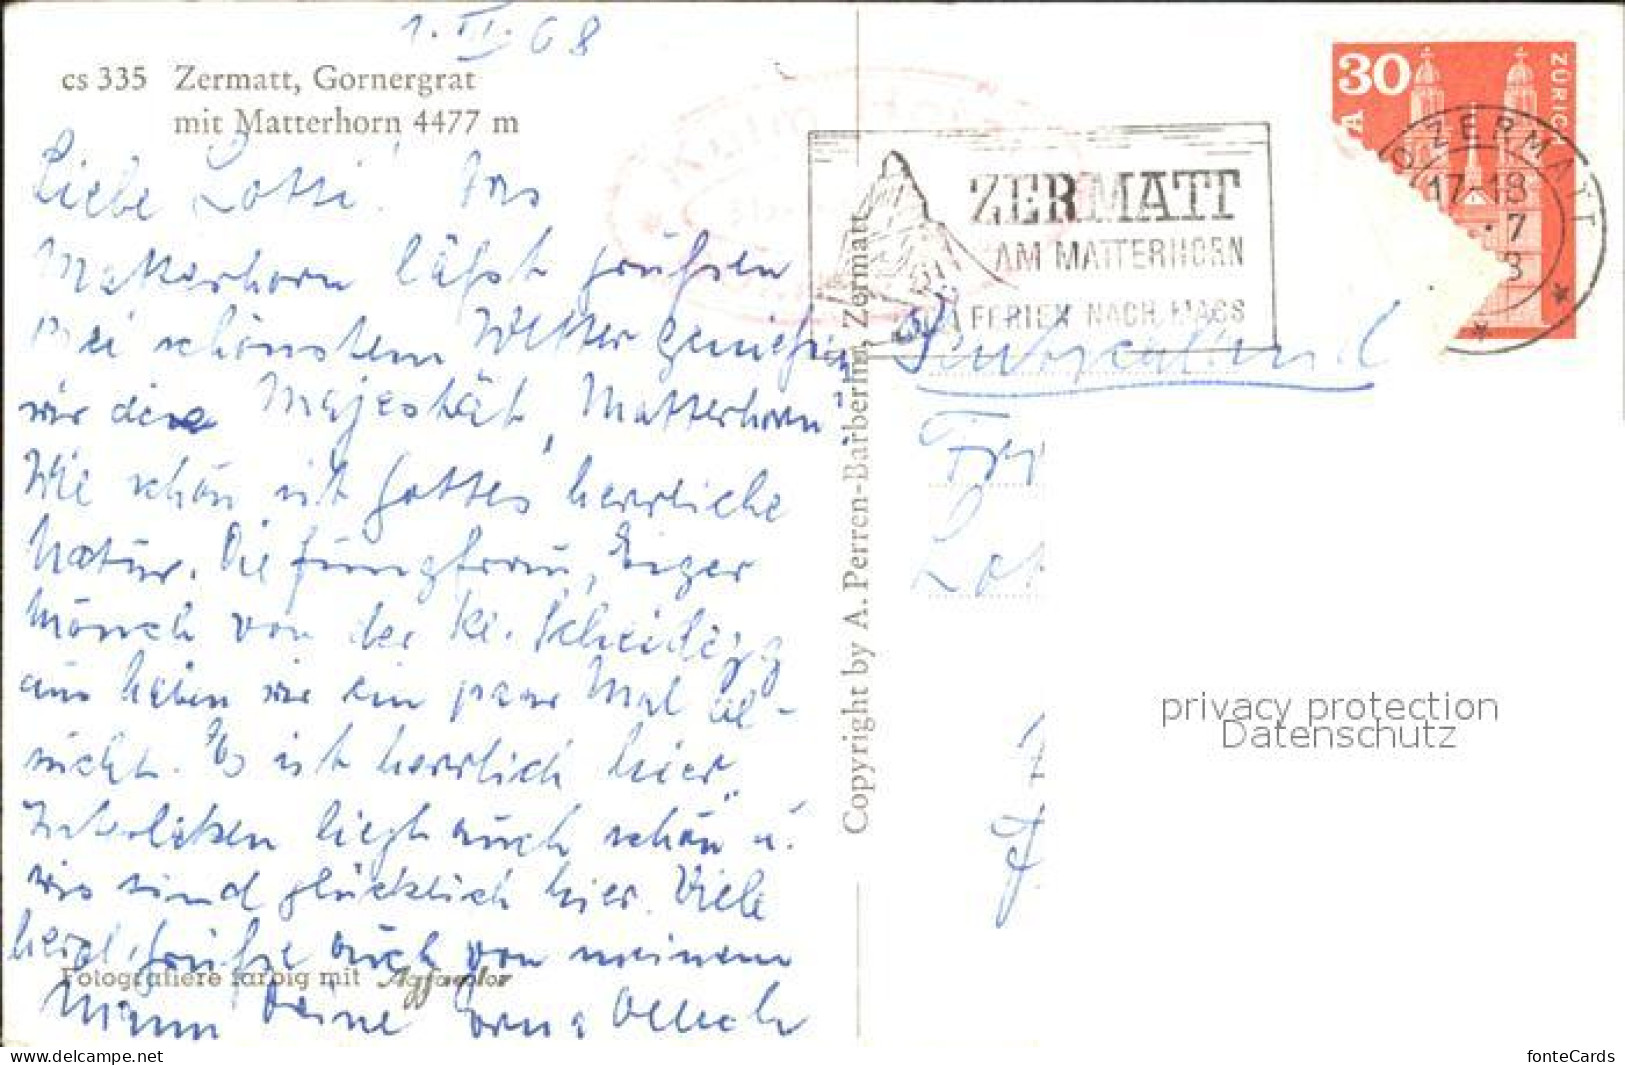 1. VII. 68
cs 335 Zermatt, Gornergrat
mit Matterhorn 4477 m
Liebe Lotti! Das
Matterhorn läßt grüßen
Bei schönstem Wetter genießen
wir die Majestät "Matterhorn"
Wie schön ist Gottes herrliche
Natur. Die Jungfrau, Eiger
Mönch von der Kl. Scheidegg
aus haben wir ein paar Mal be-
sucht. Es ist herrlich hier.
Interlaken liegt auch schön u.
wir sind glücklich hier. Viele
herzl. Grüße auch von meinem
Mann Deine
Fotografiere farbig mit Agfacolor
Copyright by A. Perren-Barberini, Zermatt
ZERMATT
AM MATTERHORN
FERIEN NACH MASS
30
ZÜRICH
ZERMATT
17-18
7
8
Deutschland
privacy protection
Datenschutz
www.delcampe.net
fonteCards